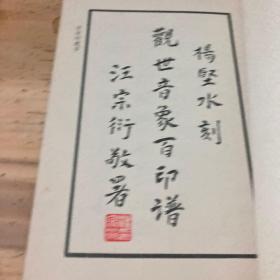 楊堅水刻
觀世音象百印谱
汪宗衍敬署